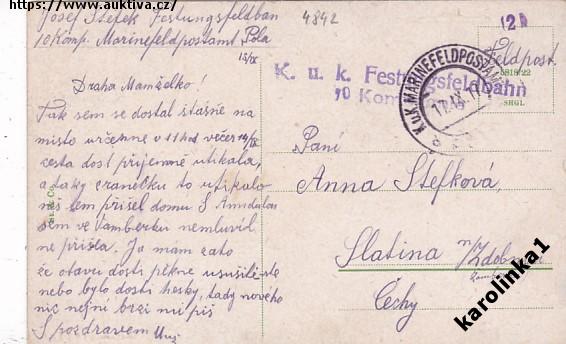 https://www.auktiva.cz/
Josef Štefek Festungsfeldban
10 Komp. Marinefeldpostamt Pola
15/IX
4842
12A
Feldpost
K. u. k. Festungsfeldbahn
10 Kom
K.u.K. MARINEFELDPOSTAMT
Drahá Mamželko!
Tak sem se dostal štasně na
místo určenne v 11 hod večer 14/IX
cesta dost příjemně utíkala,
a taky
sem přišel domu S
sem ve Vamberku nemluvil
ne přišla. Ja mam zato
že otavu dosti pěkně usušili
nebo bylo dosti hesky, tady nového
nic nejní brzi mi piš
S pozdravem Muž
Paní
Anna Štefková,
Slatina n/Zdobnicí
Čechy
karolinka1